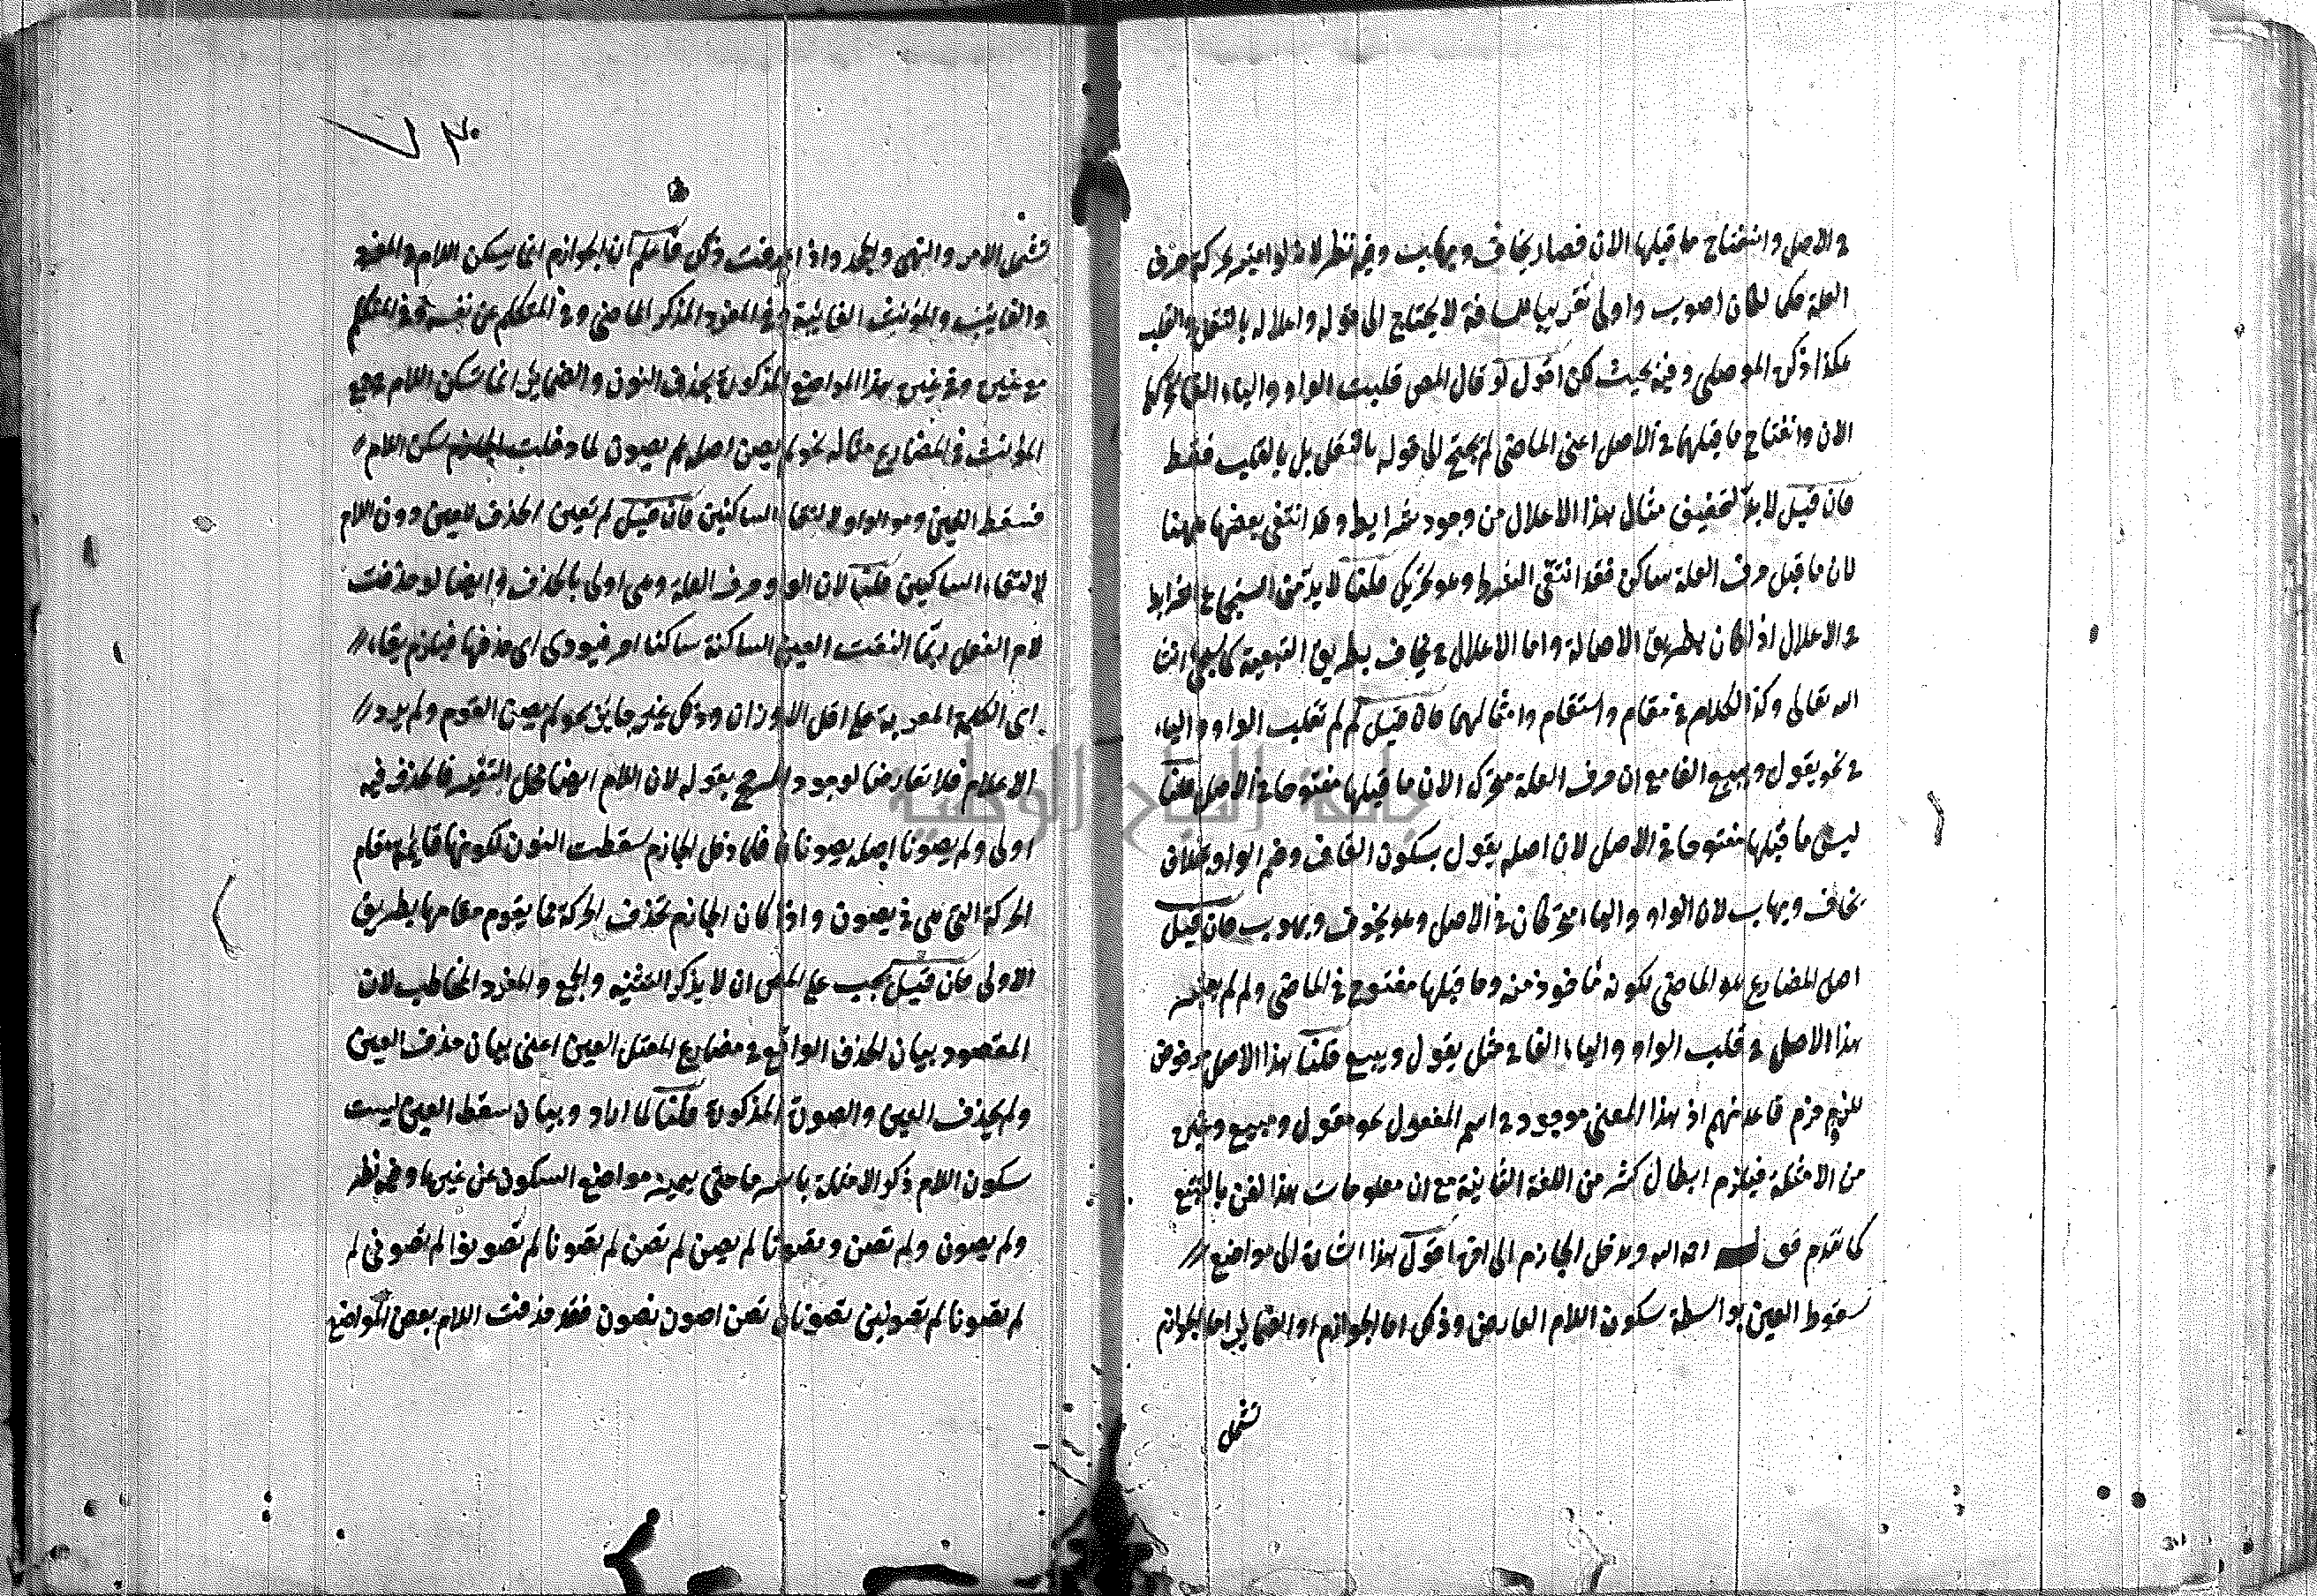 في الاصل وانفتاح ما قبلها الان فصار يخاف ويهاب وفيه نظر لانه لو اعتبر حركة حرف
العلة لكان اصوب واولى تقريبا للمسافة لا يحتاج الى قوله واعلاله بالنقل والقلب
هكذا ذكره الموصلي وفيه بحيث لكن اقول لو قال المص قلبت الواو والياء الفا لتحركهما
الان وانفتاح ما قبلهما في الاصل اعني الماضي لم يحتج الى قوله بالنقل بل بالقلب فقط
فان قيل لا بد لتحقيق مثال هذا الاعلال من وجود شرايط وقد انتفى بعضها ههنا
لان ما قبل حرف العلة ساكن فقد انتفى الشرط وهو تحريك قلنا لا بد من
في الاعلال اذ لكان بطريق الاصالة واما الاعلال في يخاف بطريق التبعية كما يجيء ان شا
الله تعالى وكذا الكلام في مقام واستقام وامثالهما فان قيل لم لم تقلب الواو والياء
في نحو يقول ويبيع الفا مع ان حرف العلة متحركة الان ما قبلها مفتوحا في الاصل قلنا
ليس ما قبلها مفتوحا في الاصل لان اصله يقول بسكون القاف وضم الواو بخلاف
يخاف ويهاب لان الواو والياء متحركان في الاصل وهو يخوف ويهوب فان قيل
اصل المضارع هو الماضي لكونه مأخوذ منه وما قبلها مفتوح في الماضي ولم لم يعتبر
هذا الاصل في قلب الواو والياء الفا في مثل يقول ويبيع قلنا هذا الاصل مرفوض
للزوم خرم قاعدتهم اذ هذا المعنى موجود في اسم المفعول نحو مقول ومبيع وغيره
من الامثلة فيلزم ابطال كثر من اللغة الثانية مع ان معلومات هذا لفن بالتتبع
كما تقدم قوله رحمه الله ويدخل الجازم الى اخره اقول هذا اشارة الى مواضع
سقوط العين بواسطة سكون اللام العارض وذلك اما بالجوازم او بالضماير اما الجوازم
تشمل
٣٠
تشمل الامر والنهي والجحد واذا عرفت ذلك فاعلم ان الجوازم انما يسكن اللام والمفرد
والغايب والمؤنث الغائبة وفي المفرد المذكر الماضي وفي المتكلم عن نفسه وفي المتكلم
مع غيره وفي غير هذا المواضع المذكورة بحذف النون والضماير انما تسكن اللام جمع
المؤنث في المضارع مثاله نحو لم يصن اصله لم يصون لما دخلت الجازم سكن اللام
فسقط العين وهو الواو لالتقاء الساكنين فان قيل لم تعين الحذف للعين دون اللام
لالتقاء الساكنين قلنا لان الواو حرف العلة وهي اولى بالحذف وايضا لو حذفت
لام الفعل ربما التقت العين الساكنة ساكنا اخر فيودي اى حذفها فيلزم بقاء
اى الكلمة المعربة على اقل الاوزان وذلك غير جايز نحو لم يصن القوم ولم يرد
الاعلام فلا تعارضا لوجود المرجح بقوله لان اللام ايضا محل التغير فالحذف فيه
اولى ولم يصونا اصله يصونان فلما دخل الجازم سقطت النون لكونها قايمة مقام
الحركة التي هي في يصون واذا كان الجازم تحذف الحركة فما يقوم مقامها بطريق
الاولى فان قيل يجب على المص ان لا يذكر التثنيه والجمع والمفرد المخاطب لان
المقصود بيان الحذف الواقع في مضارع المعتل العين اعني بيان حذف العين
ولم يحذف العين والصورة المذكورة قلنا لما اراد وبيان سقط العين ليست
سكون اللام ذكر الامثلة باسرها حتى يميزه مواضع السكون عن غيرها وفيه نظر
ولم يصون ولم تصن وتصونا لم يصن لم تصن لم تصونا لم تصونوا لم تصوني لم
لم تصونا لم تصونين تصونان تصن اصون نصون فقد حذفت اللام بعض المواضع